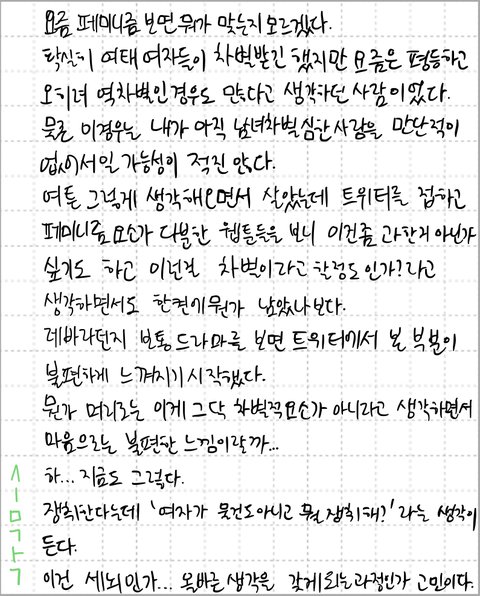 요즘 페미니즘 보면 뭐가 맞는지 모르겠다.
확실히 여태 여자들이 차별받긴 했지만 요즘은 평등하고
오히려 역차별인 경우도 많다고 생각하던 사람이었다.
물론 이경우는 내가 아직 남녀차별 심한 사람을 만난적이
없어서일 가능성이 적진 않다.
여튼 그렇게 생각해오면서 살았는데 트위터를 접하고
페미니즘 요소가 다분한 웹툰들을 보니 이건좀 과한거 아닌가
싶기도 하고 이런걸 차별이라고 할정도인가? 라고
생각하면서도 한켠에 뭔가 남았나보다.
레바라던지 보통 드라마를 보면 트위터에서 본 부분이
불편하게 느껴지기 시작했다.
뭔가 머리로는 이게 그닥 차별적요소가 아니라고 생각하면서
마음으로는 불편한 느낌이랄까...
하... 지금도 그렇다.
쟁취한다는데 '여자가 물건도아니고 뭘 쟁취해?' 라는 생각이
든다.
이건 세뇌인가... 올바른 생각을 갖게되는 과정인가 고민이다.